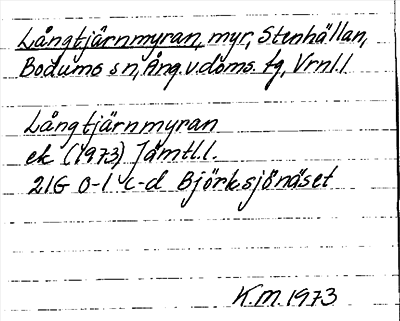 Långtjärnmyran, myr, Stenhällan,
Bodums sn, Ång.v.doms. tg, Vrnl.l
Långtjärnmyran
ek (1973) Jämtl.l.
21G 0-1 c-d Björksjönäset
K.M. 1973